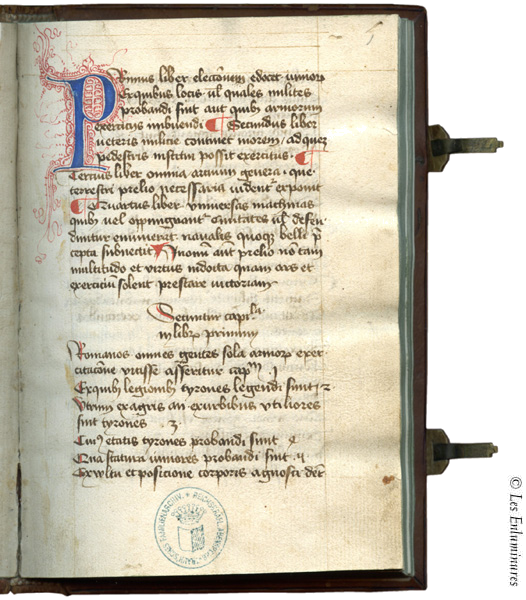 5
Primus liber electionem edocet iuniorum
Exquibus locis uel quales milites
probandi sint aut quibus armorum
exercicijs imbuendi ¶ Secundus liber
ueteris milicie continet morem ad quem
pedestris institui possit exercitus ¶
Tercius liber omnia arcium genera que
terrestri prelio necessaria videntur exponit
¶ Quartus liber vniuersas machinas
quibus uel oppugnantur ciuitates uel defen
duntur enumerat naualis quoque belli pre
cepta subnectit In omni autem prelio non tam
multitudo et virtus indocta quam ars et
exercicium solent prestare victoriam
Secuntur capitula
in librum primum
Romanos omnes gentes sola armorum exer
citacione vicisse asseritur capm 1
Exquibus legionibus tyrones legendi sint 2
Vtrum ex agris an ex vrbibus vtiliores
sint tyrones 3
Cuius etatis tyrones probandi sunt 4
Qua statura iuniores probandi sint 5
Ex vultu et posicione corporis agnosci debet
© Les Enluminures